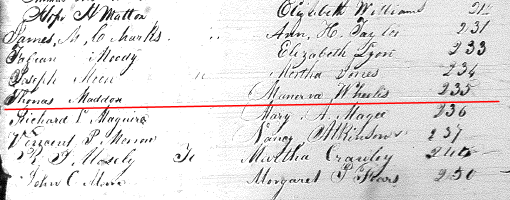 Hope H Matton Elizabeth Williams
James, M, C Marks Ann, H. Taylor 231
Moody Elizabeth Lyon 233
Joseph Meen " Martha Jones 234
Thomas Maddox Manerva Wheeler 235
Richard P Maguire Mary A Magee 236
Vincent P. Merrow Nancy Atkinson 237
Mosely To Martha Crawley
John C. Margaret P 250